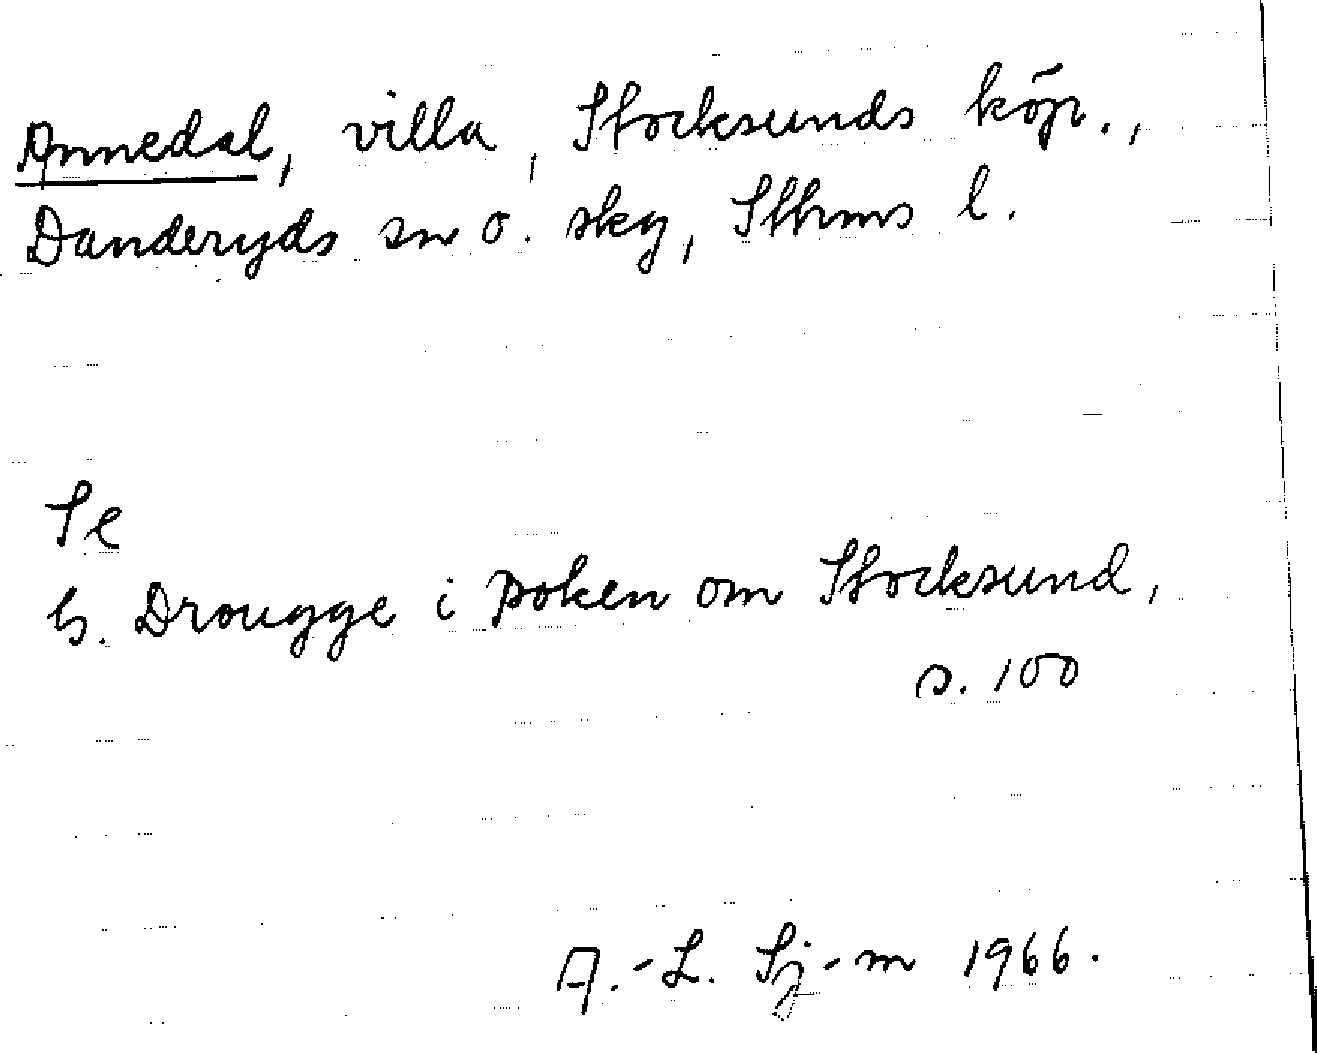 Annedal, villa, Stocksunds köp.,
Danderyds sn o. skg, Sthms l.
Se
G. Drougge i Boken om Stocksund,
s. 100
A.-L. Sj-m 1966.